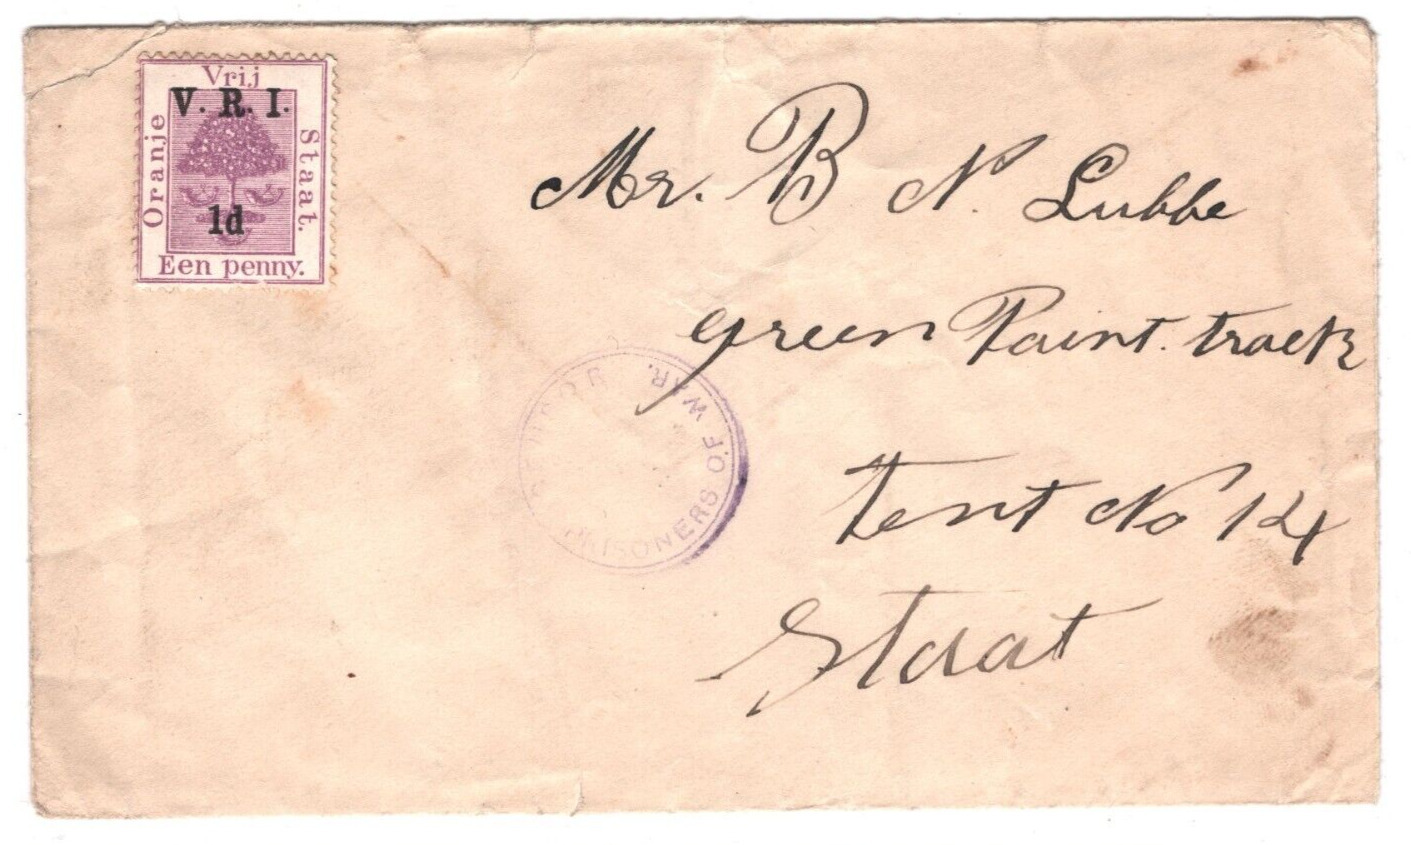 Vrij
V. R. I.
Oranje
Staat.
1d
Een penny.
Mr. B N. Lubbe
green Point. track
Tent No 14
Staat
CENSOR
PRISONERS OF WAR.